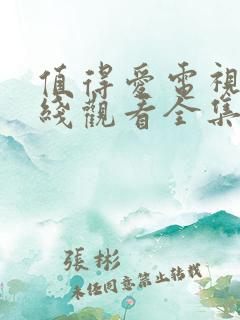 值得爱電視
綫觀看全集
張彬
未经同意禁止转载